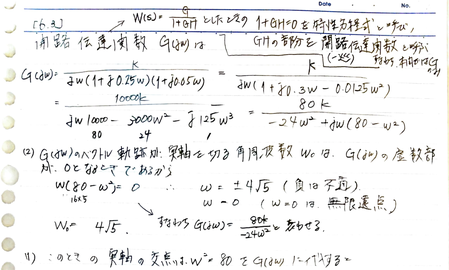 [6.3] W(s)= G/(1+GH) としたときの 1+GH=0 を特性方程式と呼び,
GHの部分を開路伝達関数と呼ぶ
開路伝達関数 G(jω)は
G(jω)= K/(jω(1+j0.25ω)(1+j0.05ω)) = K/(jω(1+j0.3ω-0.0125ω²))
= 10000K/(jω10000-3000ω²-j125ω³) = 80K/(-24ω²+jω(80-ω²))
80 24 1
(2) G(jω)のベクトル軌跡が実軸を切る角周波数 ω₀は, G(jω)の虚数部
が 0となるときであるから
ω(80-ω²)=0 ∴ ω=±4√5 (負は不適)
16×5 ω=0 (ω=0は無限遠点)
ω₀=4√5. すなわち G(jω)= 80K/-24ω² と表わせる.
1) このときの実軸の交点は, ω²=80 を G(jω)に代すると